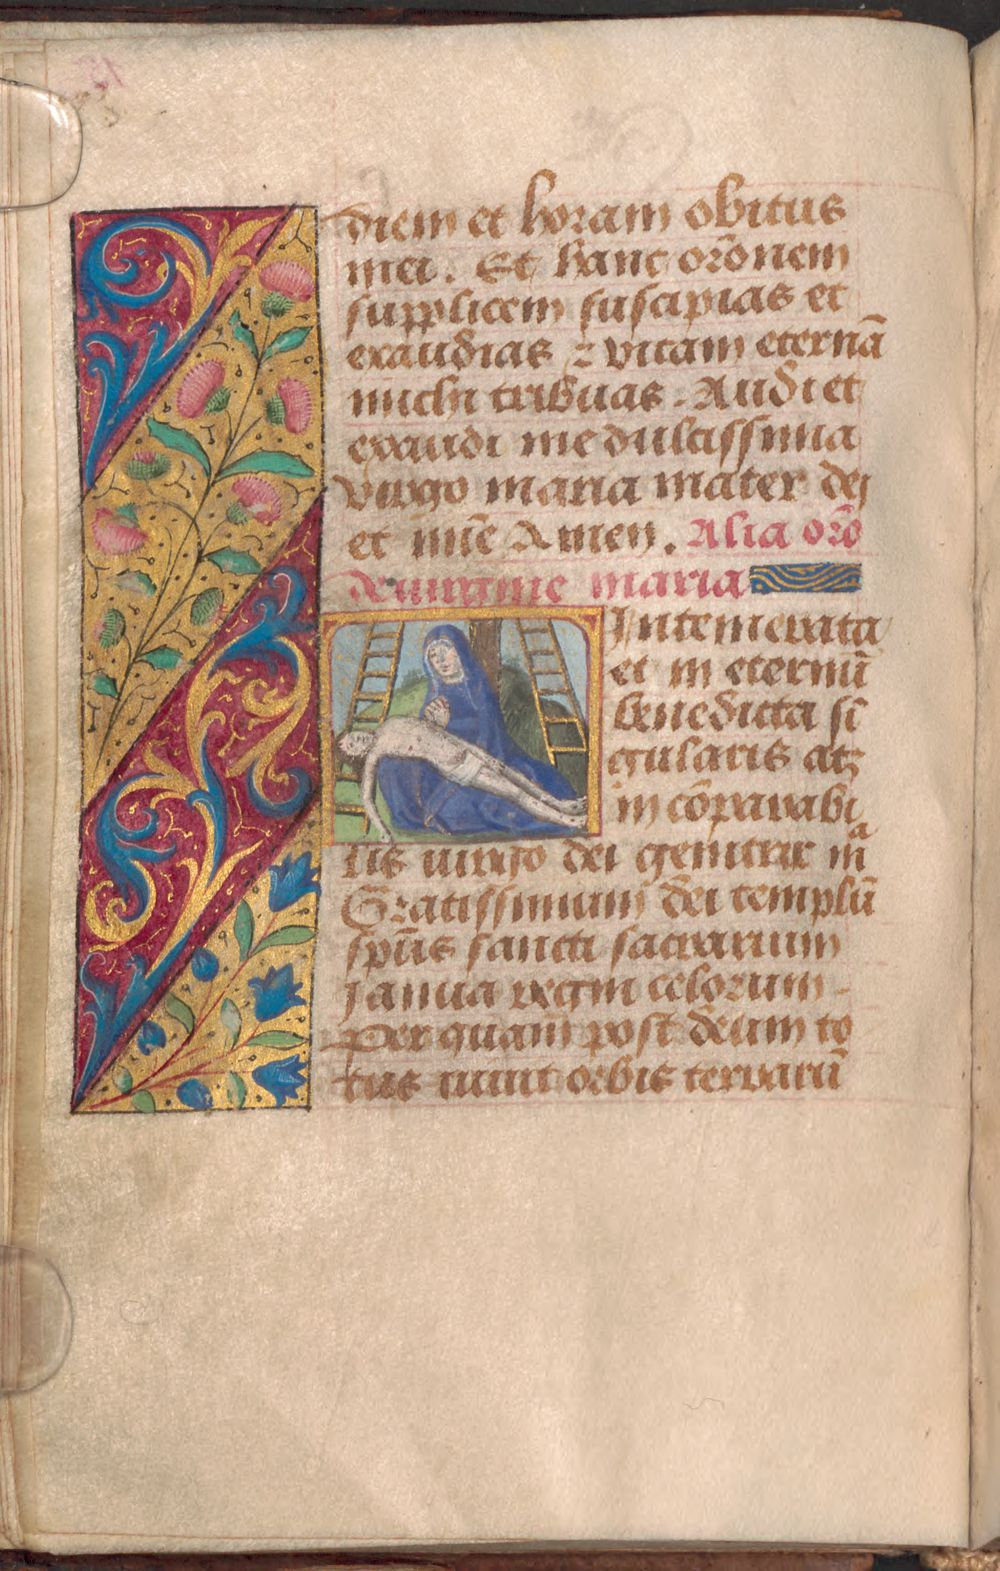 diem et horam obitus
mei. Et hanc orõnem
supplicem suscipias et
exaudias ⁊ vitam eternã
michi tribuas. Audi et
exaudi me dulcissima
virgo maria mater dei
et mie̅ Amen. Alia orõ
de uirgine maria
Intemerata
et in eternũ
benedicta sĩ
gularis atqꝫ
in cõparabi
lis uirgo dei genitrix mᵃ
Gratissimum dei templũ
spũs sancti sacrarium
Janua regni celorum.
Per quam post deum to
tus uiuit orbis terrarũ